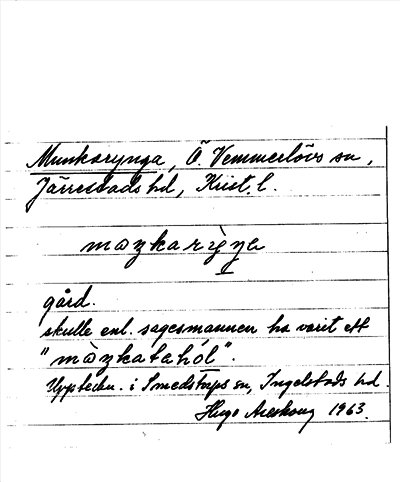 Munkarynga, Ö. Vemmerlövs sn,
Järrestads hd, Krist. l.
gård.
skulle enl. sagesmannen ha varit ett
Uppteckn. i Smedstorps sn, Ingelstads hd.
Hugo Areskoug 1963.